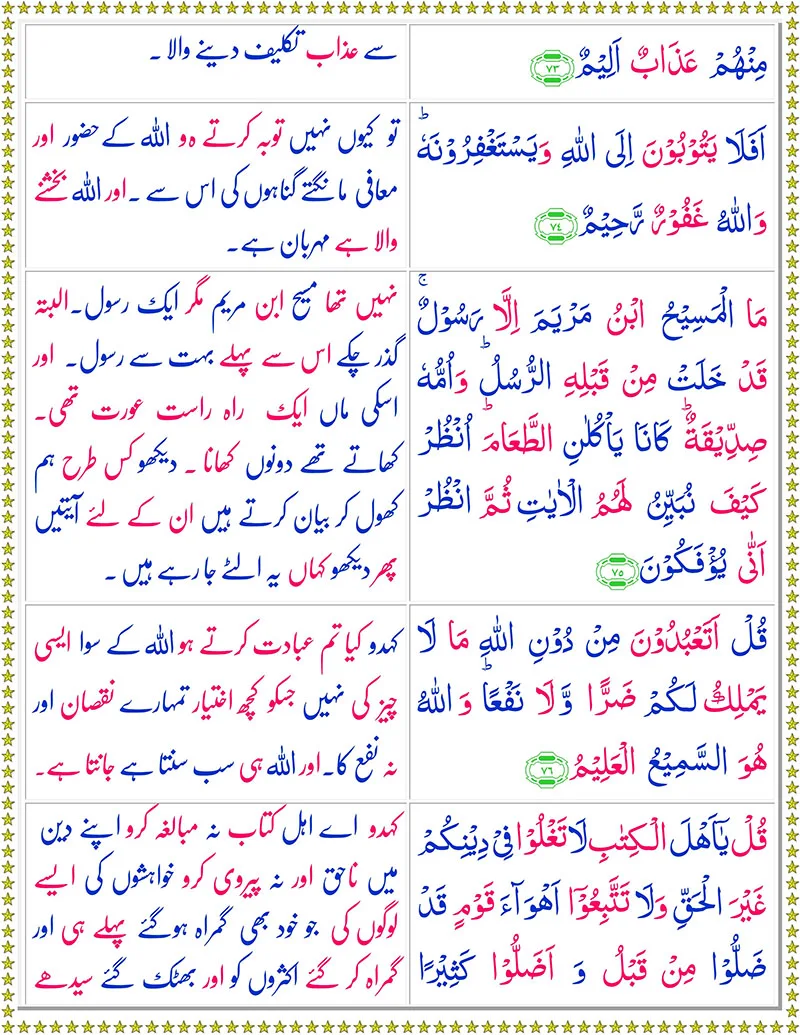 مِنْهُمْ عَذَابٌ اَلِيْمٌ ﴿٧٣﴾
سے عذاب تکلیف دینے والا ۔
اَفَلَا يَتُوْبُوْنَ اِلَى اللّٰهِ وَيَسْتَغْفِرُوْنَهٗ ؕ
وَاللّٰهُ غَفُوْرٌ رَّحِيْمٌ ﴿٧٤﴾
تو کیوں نہیں توبہ کرتے ہو اللہ کے حضور اور
معافی مانگتے گناہوں کی اس سے ۔ اور اللہ بخشنے
والا ہے مہربان ہے۔
مَا الْمَسِيْحُ ابْنُ مَرْيَمَ اِلَّا رَسُوْلٌ ۚ
قَدْ خَلَتْ مِنْ قَبْلِهِ الرُّسُلُ ؕ وَاُمُّهٗ
صِدِّيْقَةٌ ؕ كَانَا يَاْكُلٰنِ الطَّعَامَ ؕ اُنْظُرْ
كَيْفَ نُبَيِّنُ لَهُمُ الْاٰيٰتِ ثُمَّ انْظُرْ
اَنّٰى يُؤْفَكُوْنَ ﴿٧٥﴾
نہیں تھا مسیح ابن مریم مگر ایک رسول۔ البتہ
گذر چکے اس سے پہلے بہت سے رسول۔ اور
اسکی ماں ایک راہ راست عورت تھی۔
کھاتے تھے دونوں کھانا ۔ دیکھو کس طرح ہم
کھول کر بیان کرتے ہیں ان کے لئے آیتیں
پھر دیکھو کہاں یہ الٹے جا رہے ہیں ۔
قُلْ اَتَعْبُدُوْنَ مِنْ دُوْنِ اللّٰهِ مَا لَا
يَمْلِكُ لَكُمْ ضَرًّا وَّلَا نَفْعًا ؕ وَاللّٰهُ
هُوَ السَّمِيْعُ الْعَلِيْمُ ﴿٧٦﴾
کہدو کیا تم عبادت کرتے ہو اللہ کے سوا ایسی
چیز کی نہیں جسکو کچھ اختیار تمہارے نقصان اور
نہ نفع کا۔ اور اللہ ہی سب سنتا ہے جانتا ہے۔
قُلْ يٰۤاَهْلَ الْكِتٰبِ لَا تَغْلُوْا فِيْ دِيْنِكُمْ
غَيْرَ الْحَقِّ وَلَا تَتَّبِعُوْۤا اَهْوَآءَ قَوْمٍ قَدْ
ضَلُّوْا مِنْ قَبْلُ وَ اَضَلُّوْا كَثِيْرًا
کہدو اے اہل کتاب نہ مبالغہ کرو اپنے دین
میں ناحق اور نہ پیروی کرو خواہشوں کی ایسے
لوگوں کی جو خود بھی گمراہ ہوگئے پہلے ہی اور
گمراہ کر گئے اکثروں کو اور بھٹک گئے سیدھے